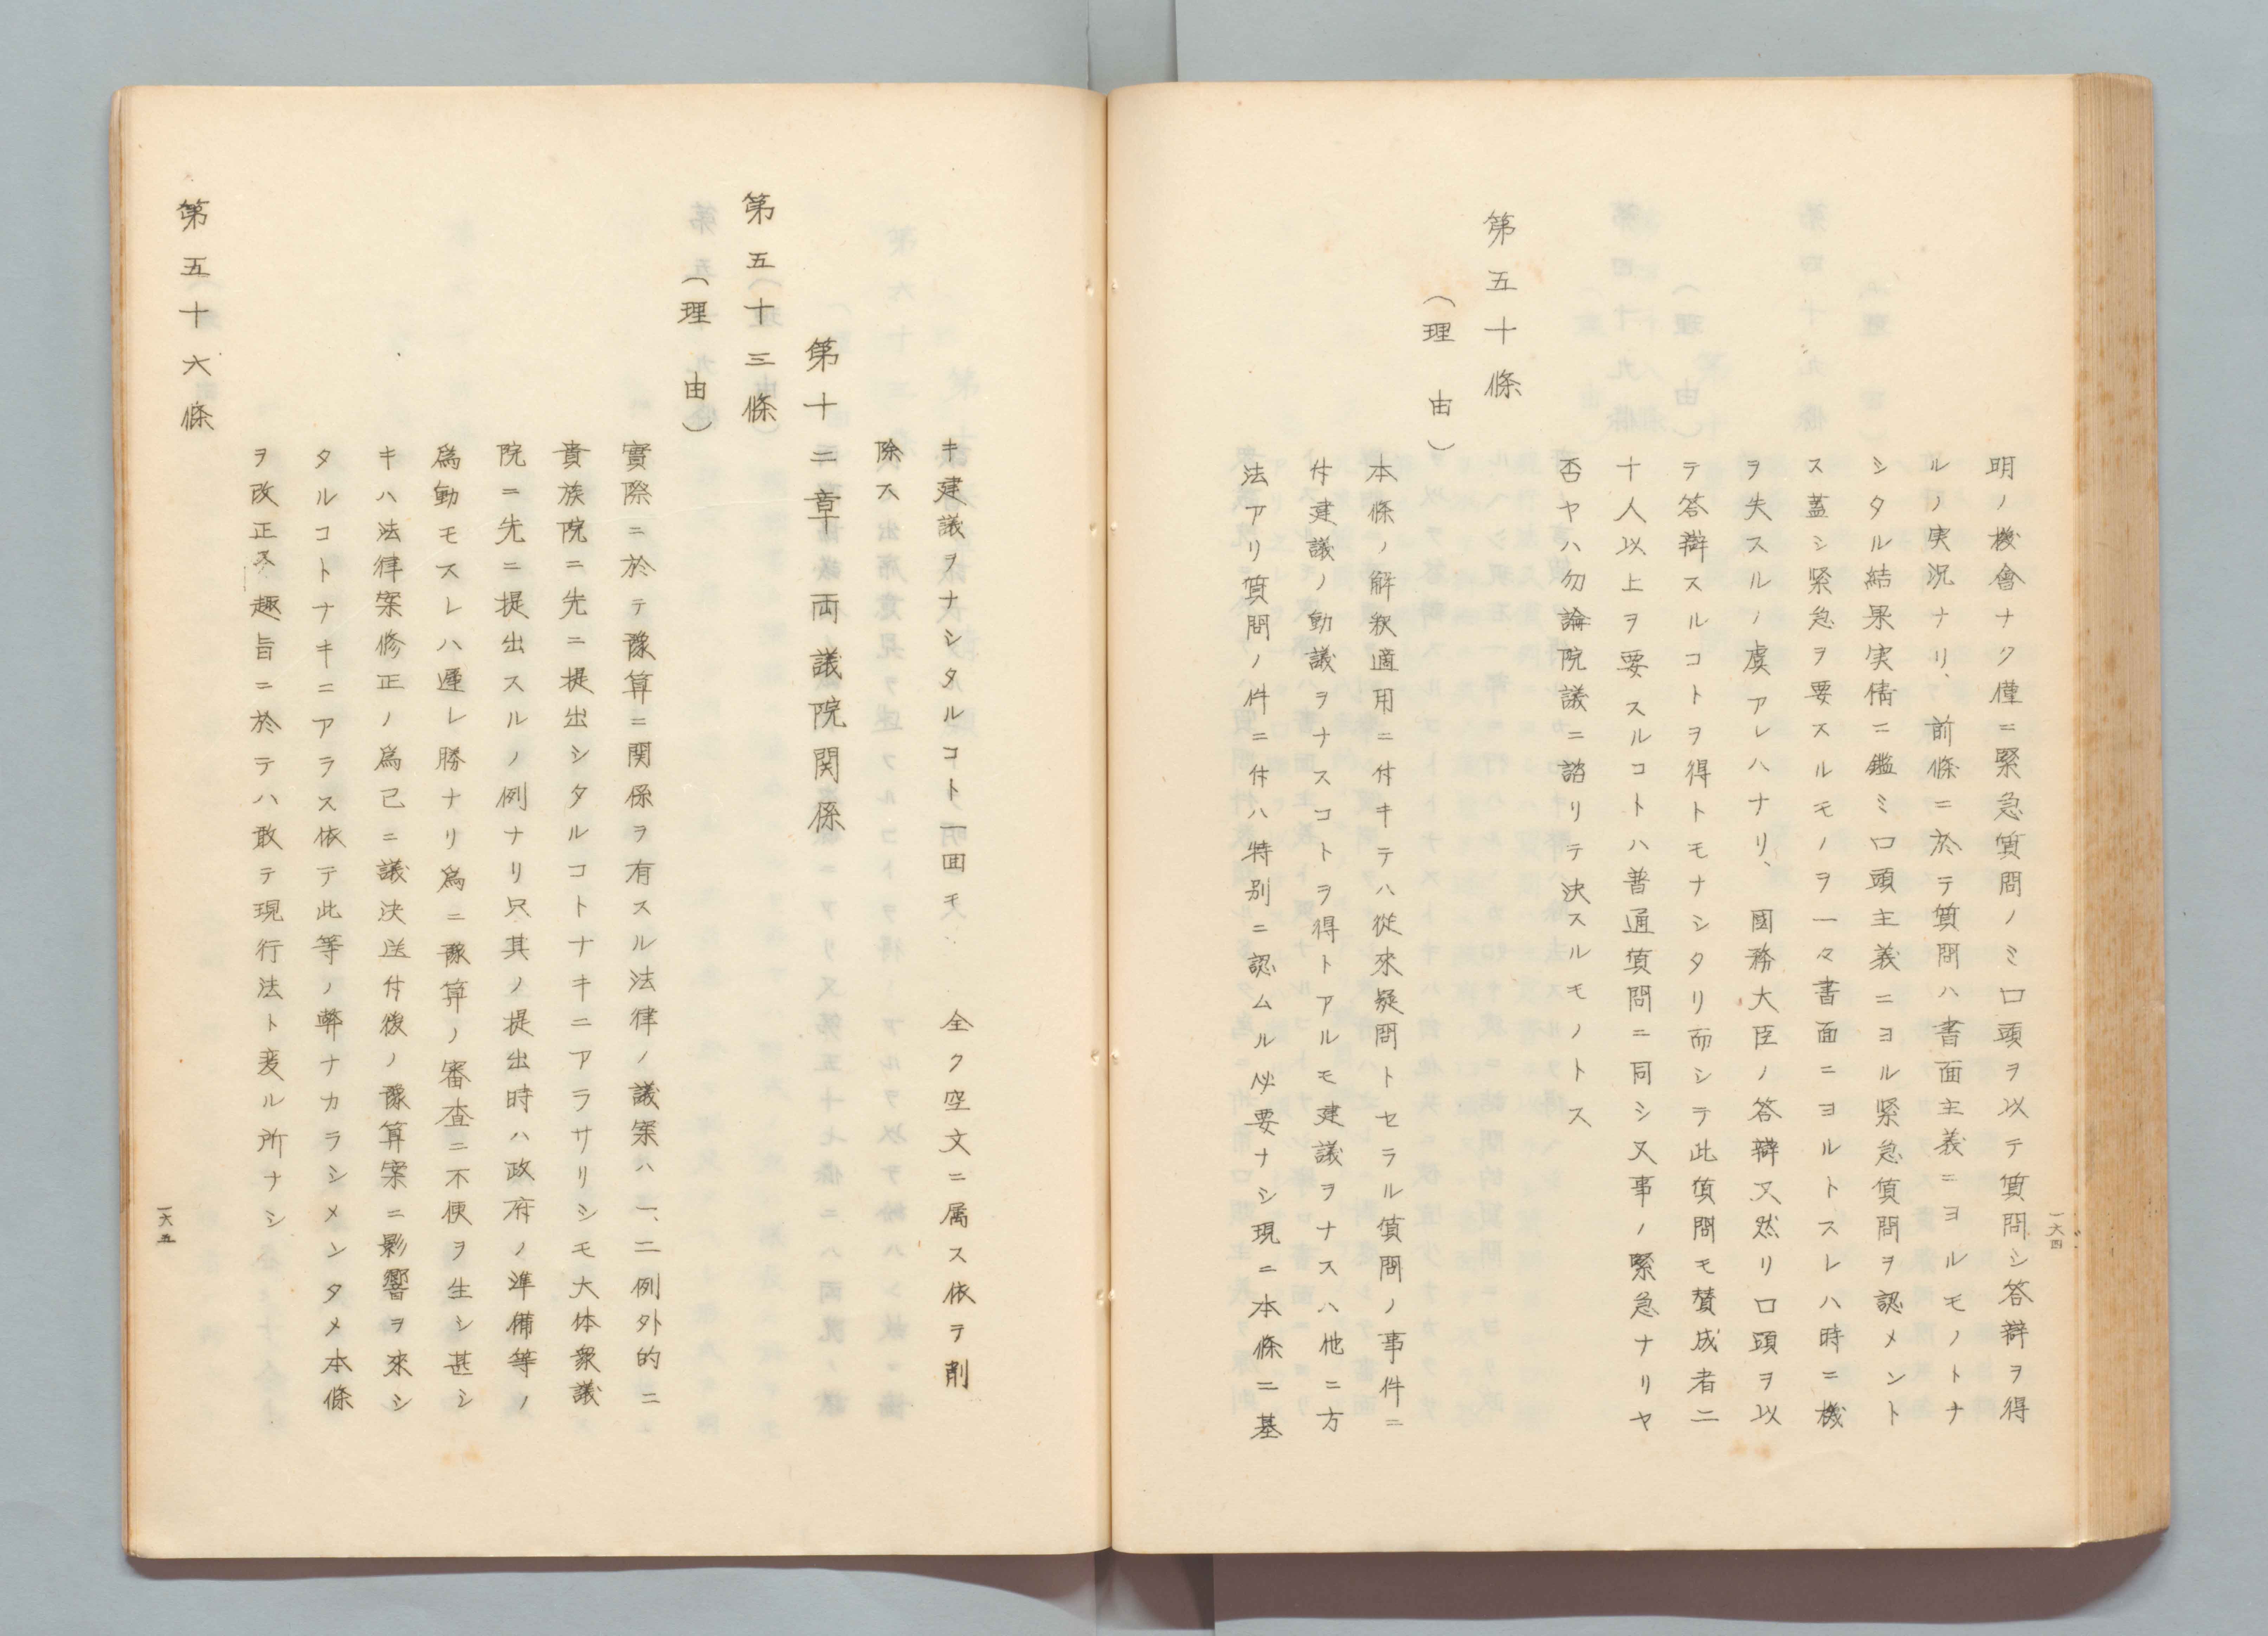 明ノ機會ナク僅ニ緊急質問ノミ口頭ヲ以テ質問シ答辯ヲ得
ルノ実況ナリ、前條ニ於テ質問ハ書面主義ニヨルモノトナ
シタル結果実情ニ鑑ミ口頭主義ニヨル緊急質問ヲ認メント
ス蓋シ緊急ヲ要スルモノヲ一々書面ニヨルトスレハ時ニ機
ヲ失スルノ虞アレハナリ、國務大臣ノ答辯又然リ口頭ヲ以
テ答辯スルコトヲ得トモナシタリ而シテ此質問モ賛成者二
十人以上ヲ要スルコトハ普通質問ニ同シ又事ノ緊急ナリヤ
否ヤハ勿論院議ニ諮リテ決スルモノトス
第五十條
(理由)
本條ノ解釈適用ニ付キテハ從來疑問トセラル質問ノ事件ニ
付建議ノ動議ヲナスコトヲ得トアルモ建議ヲナスハ他ニ方
法アリ質問ノ件ニ付ハ特別ニ認ムル必要ナシ現ニ本條ニ基
一六四
キ建議ヲナシタルコト一囬モ 全ク空文ニ属ス依テ削
除ス
第十二章 両議院関係
第五十三條
(理由)
實際ニ於テ豫算ニ関係ヲ有スル法律ノ議案ハ一、二例外的ニ
貴族院ニ先ニ提出シタルコトナキニアラサリシモ大体衆議
院ニ先ニ提出スルノ例ナリ只其ノ提出時ハ政府ノ準備等ノ
為動モスレハ遲レ勝ナリ為ニ豫算ノ審査ニ不便ヲ生シ甚シ
キハ法律案修正ノ為已ニ議決送付後ノ豫算案ニ影響ヲ來シ
タルコトナキニアラス依テ此等ノ弊ナカラシメンタメ本條
ヲ改正ス趣旨ニ於テハ敢テ現行法ト変ル所ナシ
第五十六條
一六五